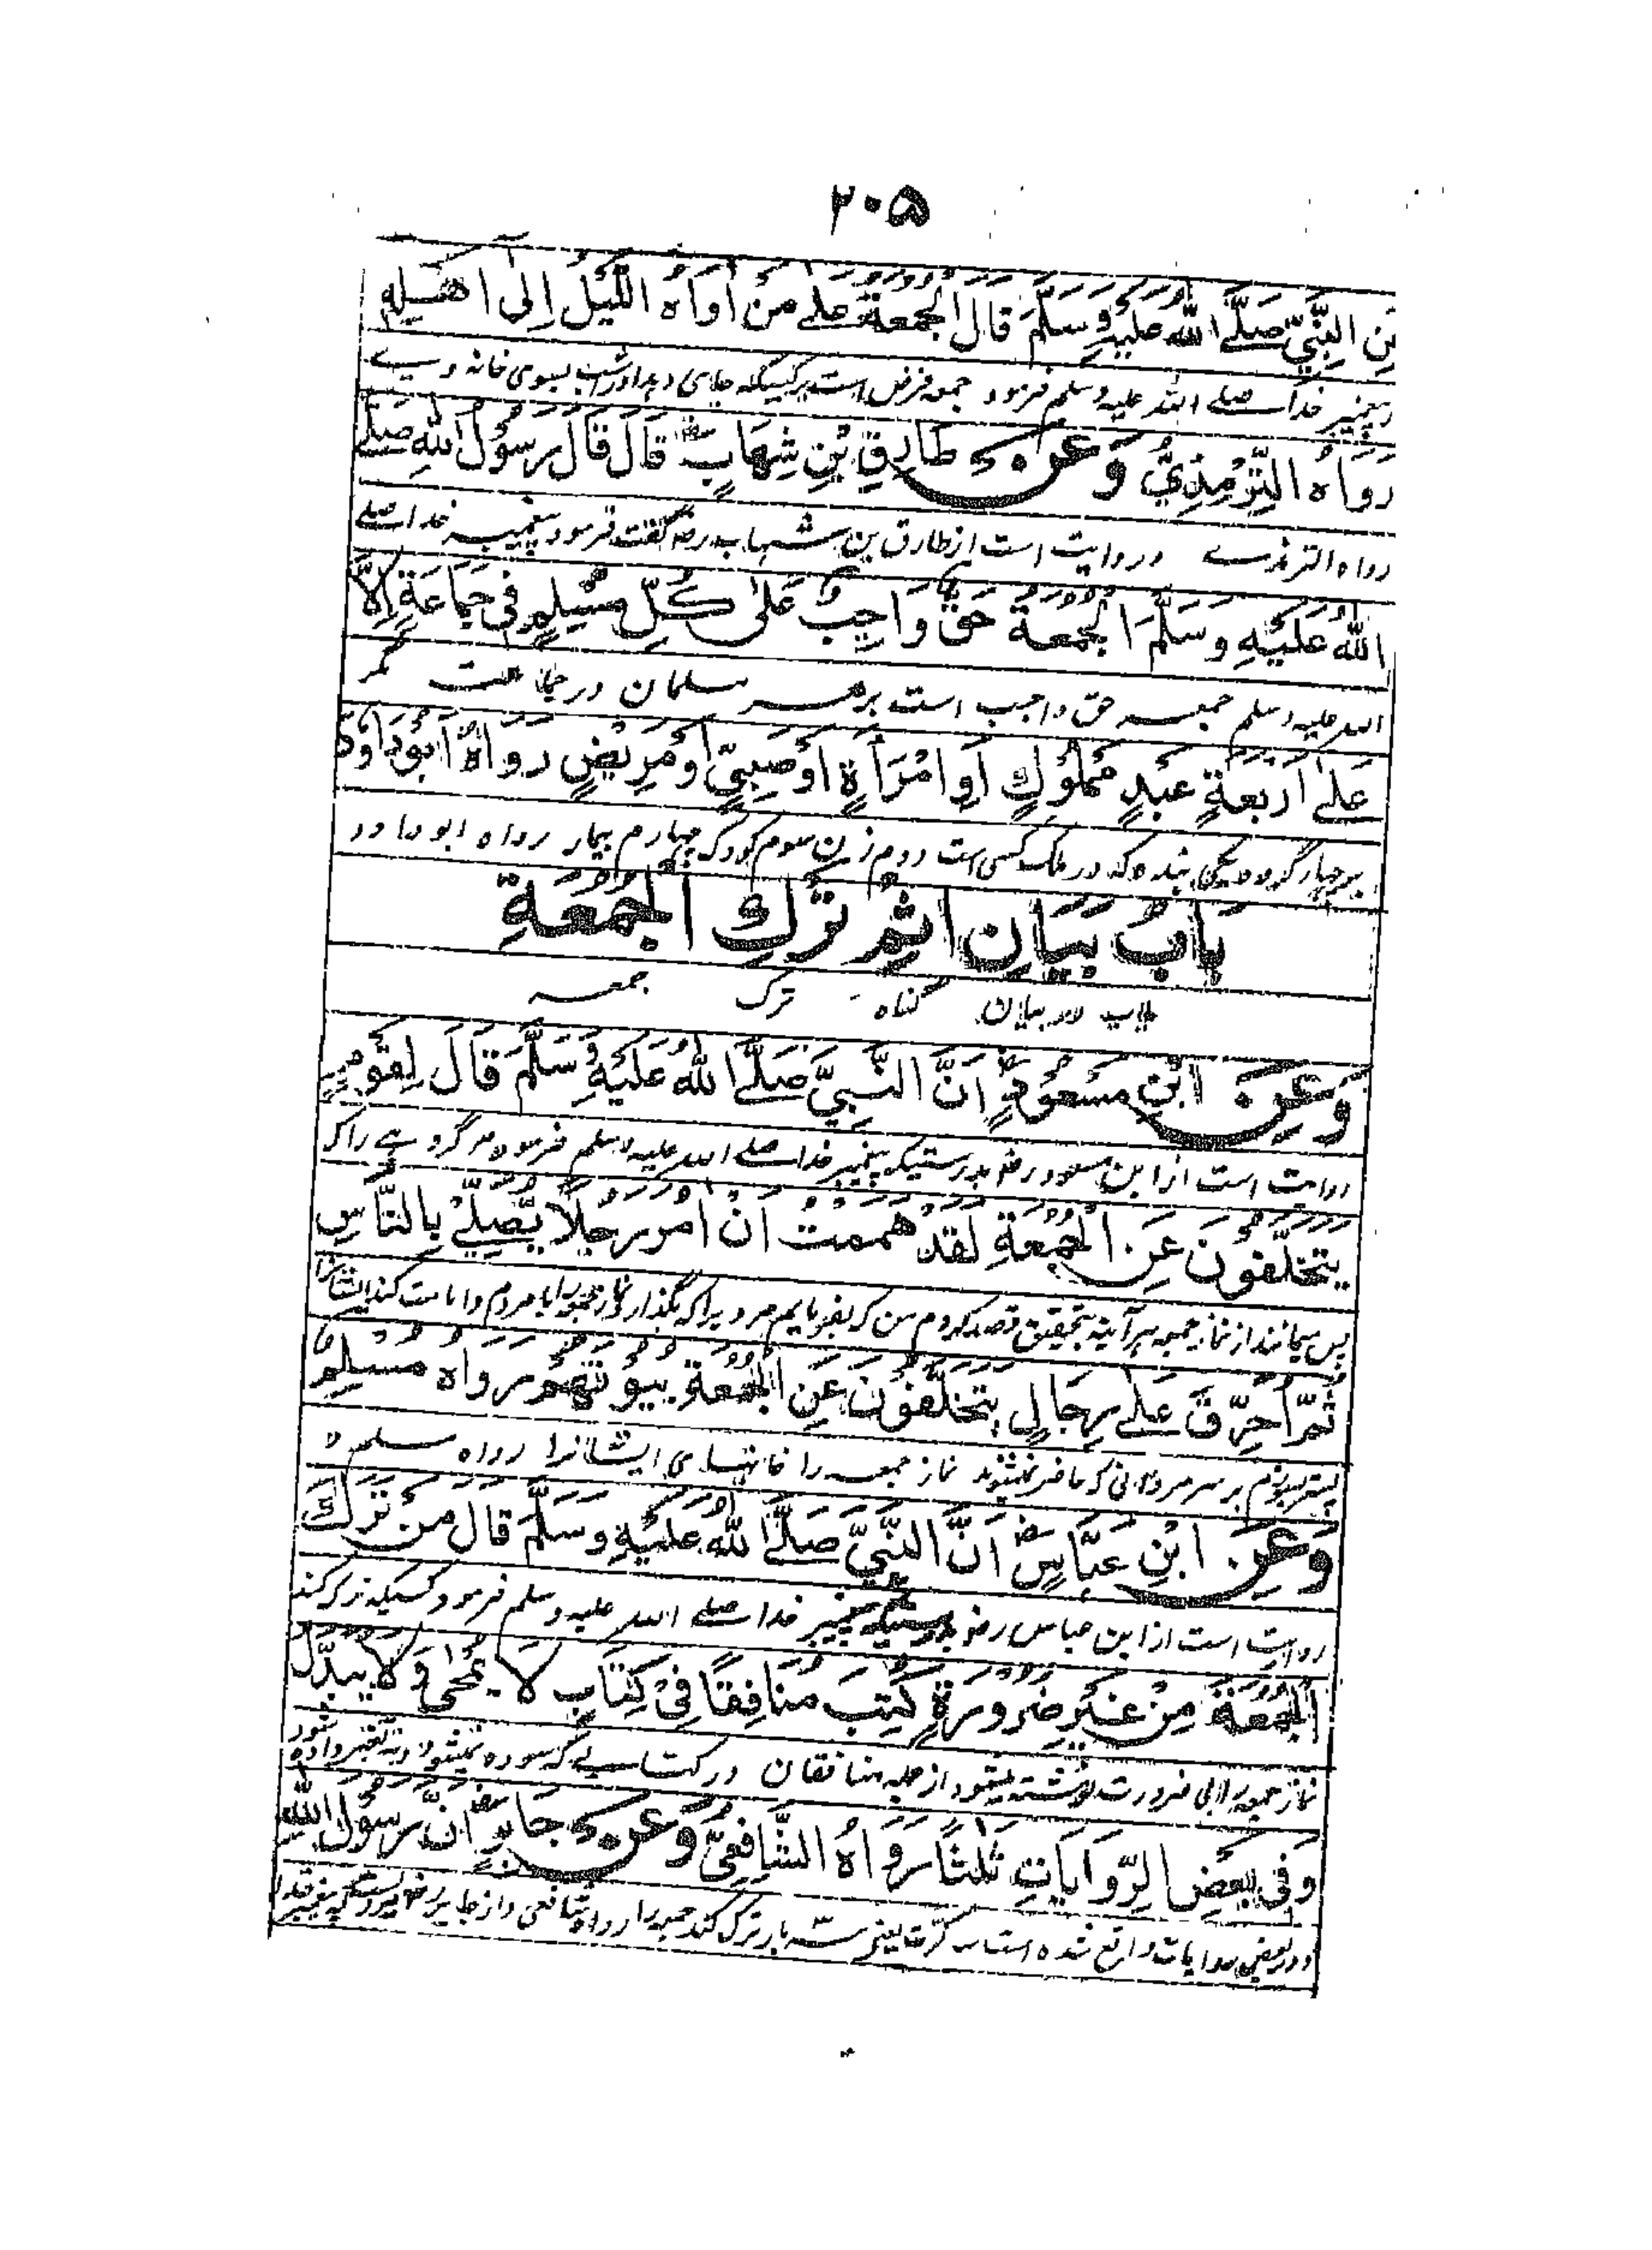 ۲۰۵
عَنِ النَّبِيِّ صَلَّے اللهُ عَلَيْهِ وَسَلَّمَ قَالَ الْجُمُعَةُ عَلٰے مَنْ اٰوَاهُ اللَّيْلُ اِلٰى اَهْلِهٖ
پیغمبر خدا صلے الله علیه وسلم فرمود جمعه فرض است بر کسیکه جای دهد او را شب بسوی خانه وے
رَوَاهُ التِّرْمِذِيُّ وَعَنْ طَارِقِ بْنِ شِهَابٍ رض قَالَ قَالَ رَسُوْلُ اللهِ صَلَّے
رواه الترمذے و روایت است از طارق بن شهاب رض گفت فرمود پیغمبر خدا صلے
اللهُ عَلَيْهِ وَسَلَّمَ الْجُمُعَةُ حَقٌّ وَاجِبٌ عَلٰى كُلِّ مُسْلِمٍ فِيْ جَمَاعَةٍ اِلَّا
الله علیه وسلم جمعه حق واجب است بر هر مسلمان در جماعت مگر
عَلٰے اَرْبَعَةٍ عَبْدٍ مَمْلُوْكٍ اَوِ امْرَأَةٍ اَوْ صَبِيٍّ اَوْ مَرِيْضٍ رَوَاهُ اَبُوْ دَاوُدَ
بر چهار گروه یکی بنده که در ملک کسی است دوم زن سوم کودک چهارم بیمار رواه ابو داود
بَابُ بَيَانِ اِثْمِ تَرْكِ الْجُمُعَةِ
باب در بیان گناه ترک جمعه
وَعَنِ ابْنِ مَسْعُوْدٍ رض اَنَّ النَّبِيَّ صَلَّے اللهُ عَلَيْهِ وَسَلَّمَ قَالَ لِقَوْمٍ
روایت است از ابن مسعود رض بدرستیکه پیغمبر خدا صلے الله علیه وسلم فرمود مر گروهے را که
يَتَخَلَّفُوْنَ عَنِ الْجُمُعَةِ لَقَدْ هَمَمْتُ اَنْ اٰمُرَ رَجُلًا يُّصَلِّيْ بِالنَّاسِ
پس میمانند از نماز جمعه هر آینه بتحقیق قصد کردم من که بفرمایم مرد یرا که بگذارد نماز جمعه را با مردم و امامت کند ایشانرا
ثُمَّ اُحَرِّقَ عَلٰے رِجَالٍ يَّتَخَلَّفُوْنَ عَنِ الْجُمُعَةِ بُيُوْتَهُمْ رَوَاهُ مُسْلِمٌ
پستر بسوزم بر سر مردمانی که حاضر نمیشوند نماز جمعه را خانهای ایشانرا رواه مسلم
وَعَنِ ابْنِ عَبَّاسٍ رض اَنَّ النَّبِيَّ صَلَّے اللهُ عَلَيْهِ وَسَلَّمَ قَالَ مَنْ تَرَكَ
روایت است از ابن عباس رض بدرستیکه پیغمبر خدا صلے الله علیه وسلم فرمود کسیکه ترک کند
الْجُمُعَةَ مِنْ غَيْرِ ضَرُوْرَةٍ كُتِبَ مُنَافِقًا فِيْ كِتَابٍ لَا يُمْحٰى وَلَا يُبَدَّلُ
نماز جمعه را بی ضرورت نوشته میشود از جمله منافقان در کتابے که سوده نمیشود و نه تغییر داده شود
وَفِيْ بَعْضِ الرِّوَايَاتِ ثَلٰثًا رَوَاهُ الشَّافِعِيُّ وَعَنْ جَابِرٍ رض اَنَّ رَسُوْلَ اللهِ
و در بعضی روایات واقع شده است سه کرت یعنی سه بار ترک کند جمعه را رواه شافعی و از جابر رض بدرستیکه پیغمبر خدا